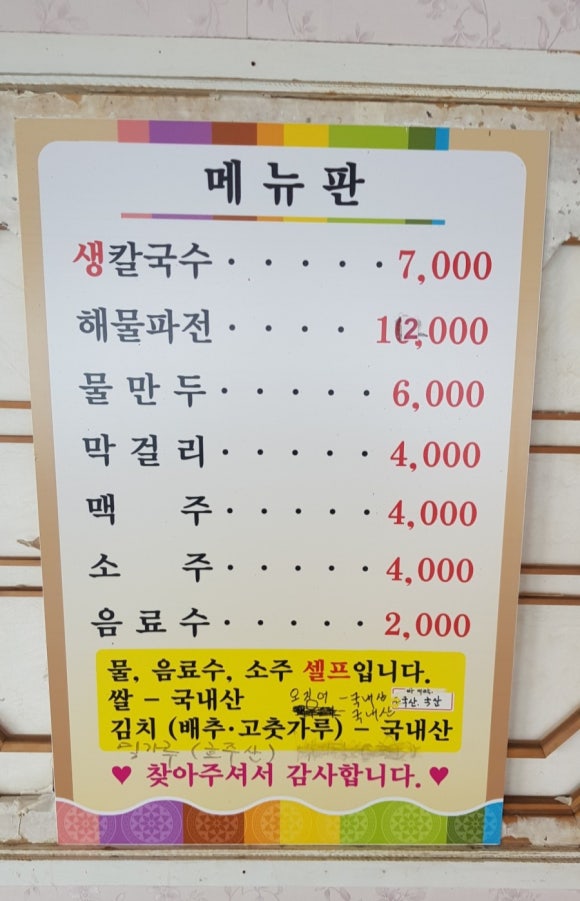 메뉴판
생칼국수 · · · · · 7,000
해물파전 · · · · 12,000
물만두 · · · · · 6,000
막걸리 · · · · · 4,000
맥주 · · · · · 4,000
소주 · · · · · 4,000
음료수 · · · · · 2,000
물, 음료수, 소주 셀프입니다.
쌀 - 국내산 오징어 - 국내산
국내산
김치 (배추·고춧가루) - 국내산
밀가루 (호주산)
♥ 찾아주셔서 감사합니다. ♥